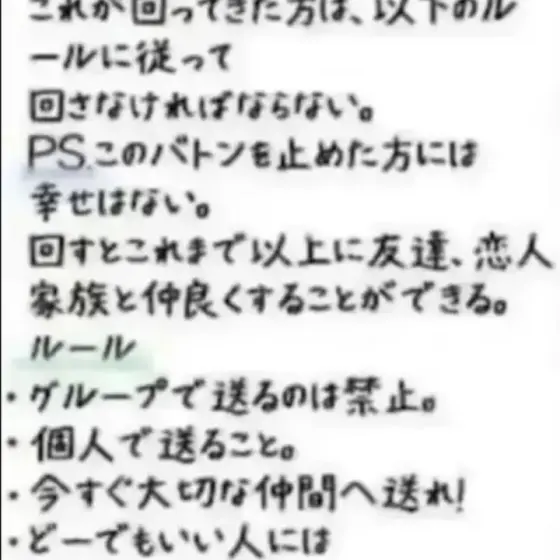 これが回ってきた方は、以下のル
ールに従って
回さなければならない。
PS.このバトンを止めた方には
幸せはない。
回すとこれまで以上に友達、恋人
家族と仲良くすることができる。
ルール
・グループで送るのは禁止。
・個人で送ること。
・今すぐ大切な仲間へ送れ!
・どーでもいい人には